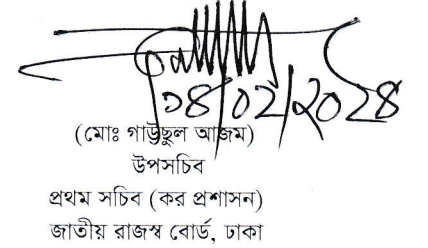 ০৪/০২/২০২৪
(মোঃ গাউছুল আজম)
উপসচিব
প্রথম সচিব (কর প্রশাসন)
জাতীয় রাজস্ব বোর্ড, ঢাকা